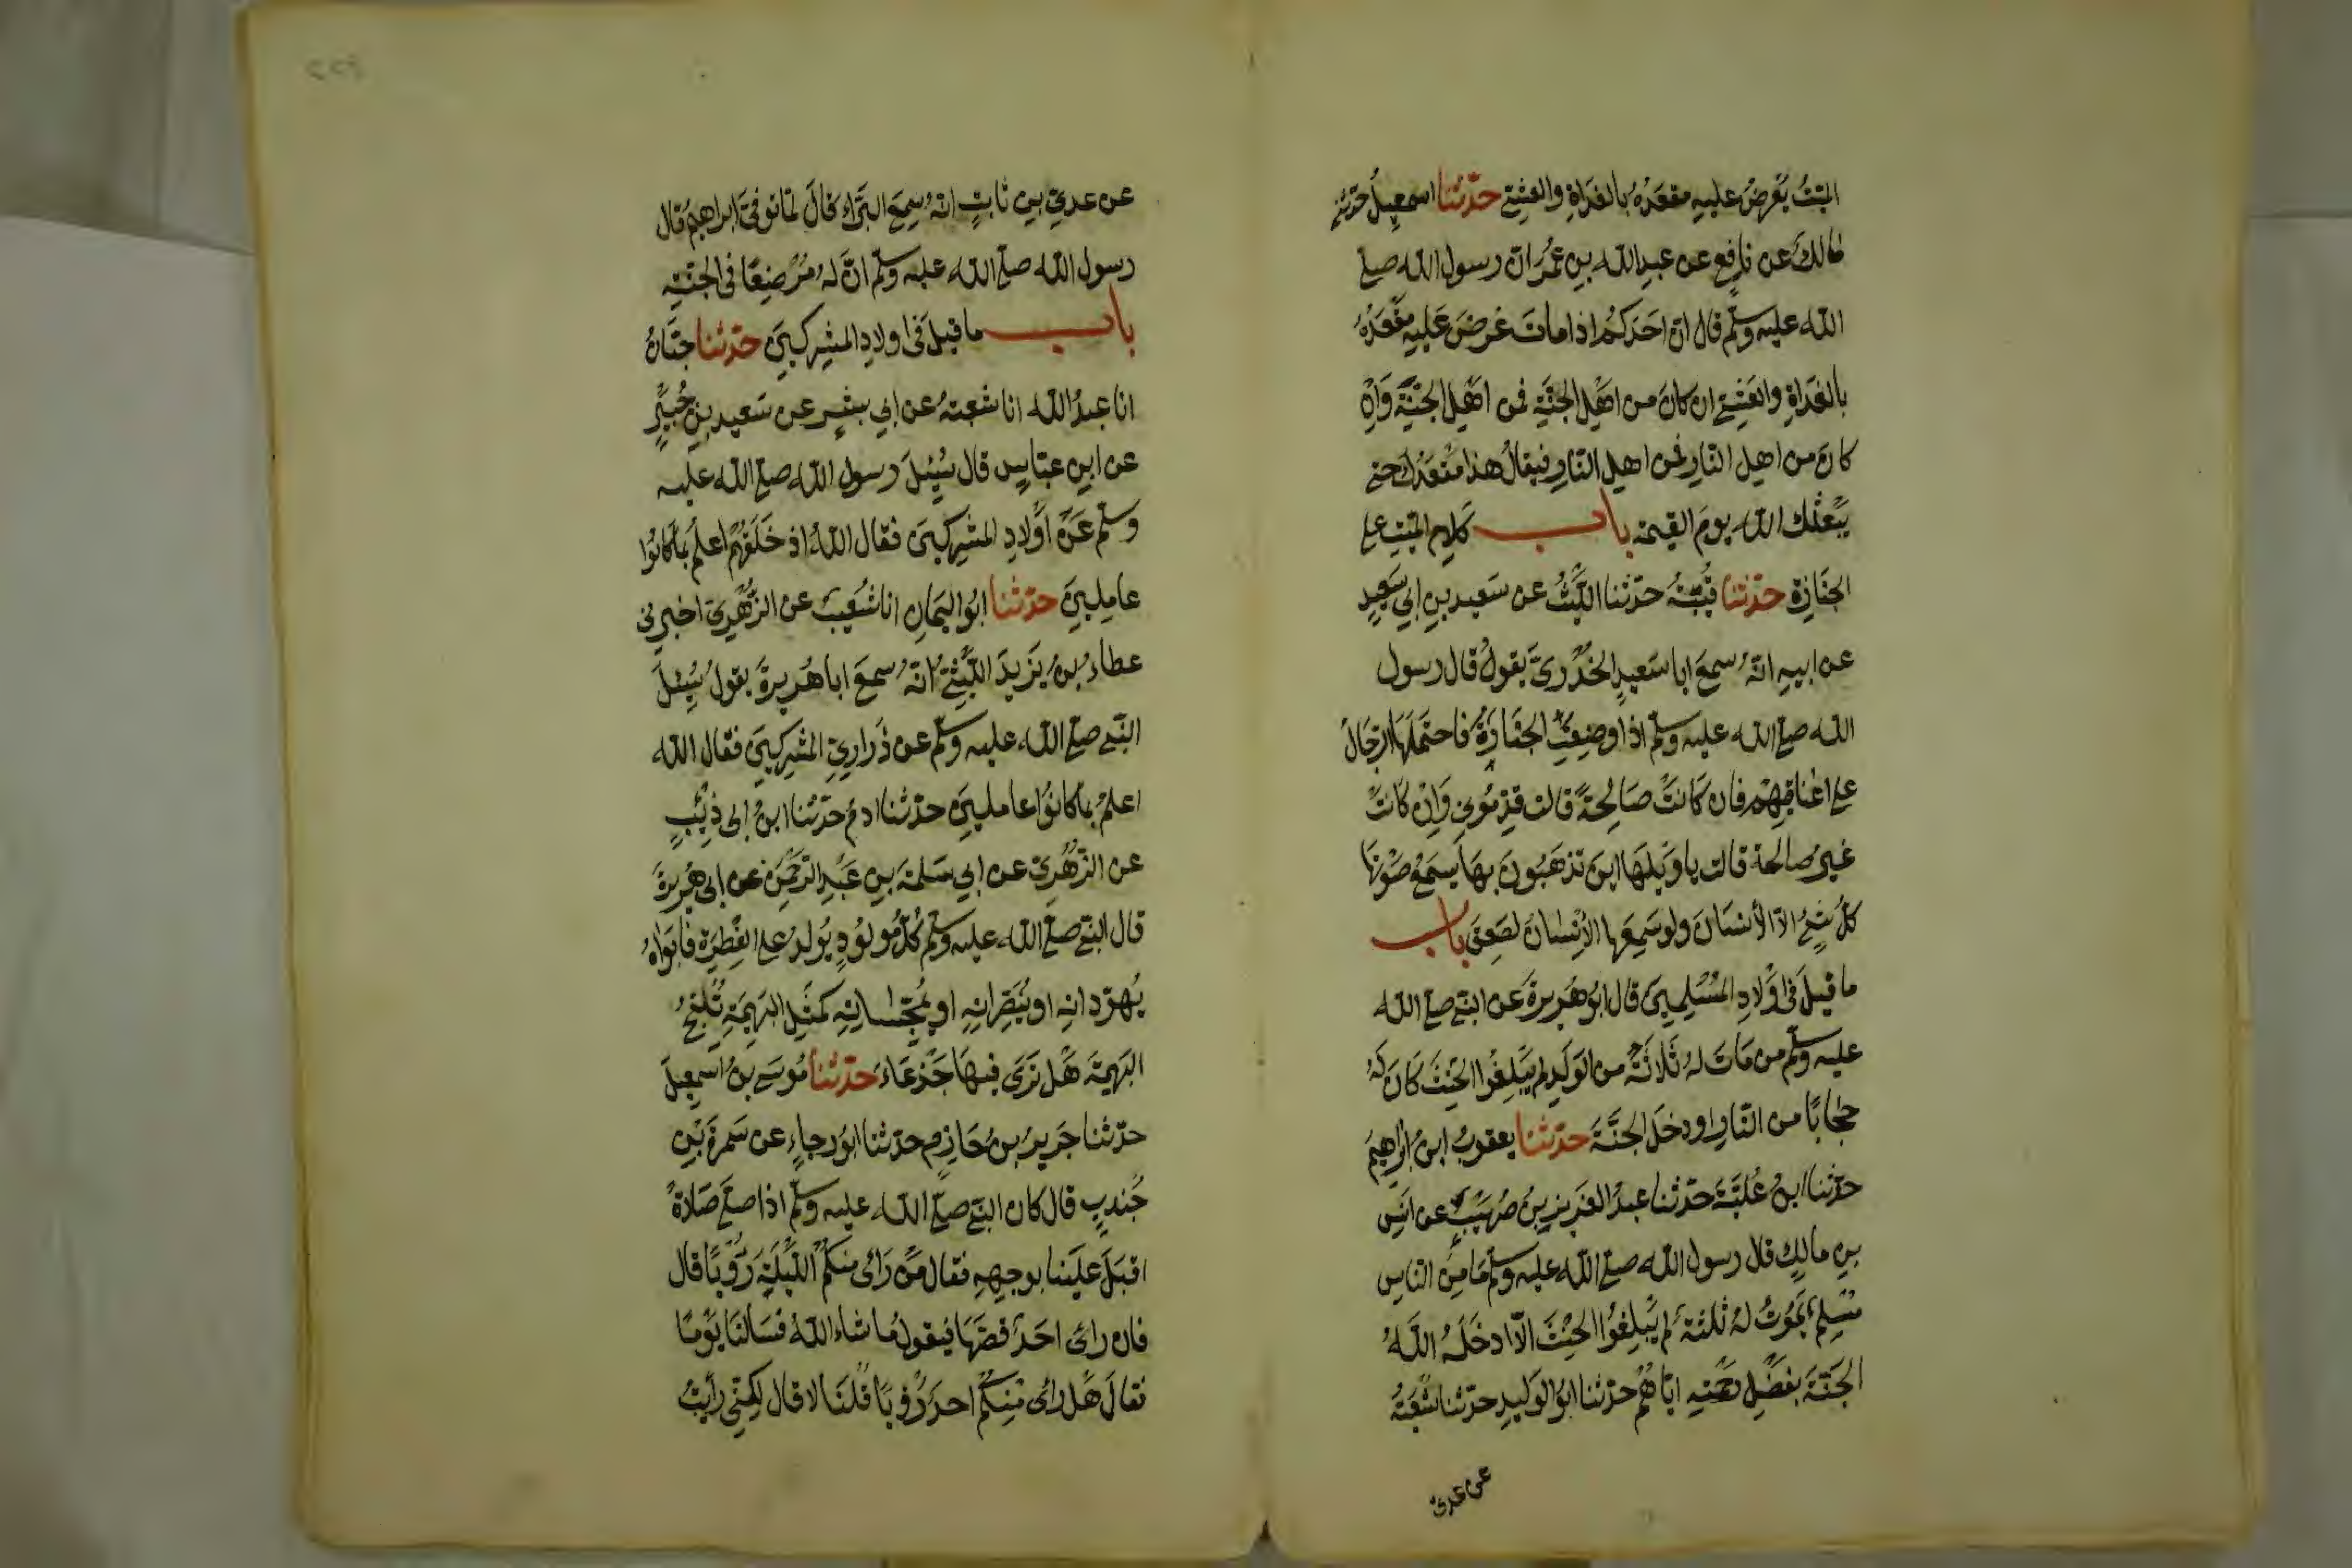 الميّتُ يُعْرَضُ عليه مقعَدُهُ بالغَدَاةِ والعَشِيّ حدّثنا اسمعيلُ حدّثني
مالكٌ عن نافعٍ عن عبدِ الله بن عُمَرَ انّ رسول الله صلّى
الله عليه وسلّم قال انّ احَدَكُم اذا ماتَ عُرِضَ عَليهِ مَقْعَدُهُ
بالغَدَاةِ والعَشِيّ ان كانَ من اَهْلِ الجنَّةِ فمن اَهْلِ الجنَّةِ وَاِنْ
كانَ من اهلِ النّارِ فمن اهلِ النّارِ فيقالُ هذا مَقْعَدُكَ حتى
يَبْعَثَك الله يومَ القيمة باب كَلام الميّتِ على
الجنَازَةِ حدّثنا قُتيبَةُ حدّثنا اللَّيْثُ عن سَعيدِ بن ابي سَعِيدٍ
عن ابيهِ انّهُ سمعَ ابا سَعيدٍ الخُدْرِيَّ يقولُ قال رسول
الله صلّى الله عليه وسلّم اذا وُضِعَتِ الجنَازَةُ فاحتَمَلَهَا الرِّجَالُ
على اعْنَاقِهِمْ فان كَانَتْ صَالِحَةً قالت قدِّمُونِي وَاِنْ كانَتْ
غَيرَ صالحة قالت يا وَيْلَهَا اينَ تَذهَبُونَ بهَا يَسْمَعُ صَوْتَهَا
كلُّ شَيْءٍ الّا الاِنْسَانَ ولو سَمِعَها الاِنْسانُ لصَعِقَ باب
ما قيلَ في اَوْلَادِ المُسْلِمِينَ قال ابُو هُرَيرةَ عن النبّي صلّى الله
عليه وسلّم من مَاتَ لهُ ثَلَاثَةٌ من الوَلَدِ لم يَبْلغُوا الحِنْثَ كَانَ لَهُ
حِجَابًا من النّارِ او دخَلَ الجنَّةَ حدّثنا يعقوبُ ابنُ اِبْرَاهِيمَ
حدّثنا ابنُ عُلَيَّةَ حدّثنا عبدُ العَزيزِ بنُ صُهَيْبٍ عن انَسِ
بنِ مالِكٍ قال رسول الله صلّى الله عليه وسلّم مَا مِنَ النّاسِ
مُسْلِمٌ يَمُوتُ لهُ ثلثةٌ لم يَبْلغُوا الحِنْثَ الّا ادخَلَهُ اللهُ
الجنَّةَ بفَضْلِ رَحْمَتِهِ ايّاهُمْ حدّثنا ابُو الوَليدِ حدّثنا شُعْبَةُ
عن عدىّ
عن عديّ بنِ ثابتٍ انّهُ سمِعَ البَرَاءَ قالَ لمّا توفّيَ ابراهيمُ قال
رسول الله صلّى الله عليه وسلّم انَّ لهُ مُرْضِعًا في الجنّةِ
باب ما قيلَ في اولادِ المشركينَ حدّثنا حبَّانُ
انا عبدُ الله انا شعبةُ عن ابي بشرٍ عن سَعيدِ بنِ جُبَيْرٍ
عن ابنِ عبّاسٍ قال سُئِلَ رسول الله صلّى الله عليه
وسلّم عَنْ اَوْلادِ المشركينَ فقال اللهُ اذ خَلَقَهُمْ اعلَمُ بما كانُوا
عامِلِينَ حدّثنا ابُو اليَمَانِ انا شُعَيبٌ عن الزُّهْرِيّ اخبرني
عطاءُ بنُ يَزيدَ اللَّيْثِيُّ انّهُ سمعَ ابا هُريرةَ يقولُ سُئِلَ
النبّي صلّى الله عليه وسلّم عن ذَرارِيِّ المشركينَ فقال الله
اعلمُ بما كانُوا عاملينَ حدّثنا ادمُ حدّثنا ابنُ ابى ذِئْبٍ
عن الزُّهْرِيّ عن ابي سَلمةَ بنِ عَبْدِ الرَّحْمنِ عن ابي هُرَيرةَ
قال النبّي صلّى الله عليه وسلّم كُلُّ مَوْلُودٍ يُولَدُ على الفِطْرَةِ فابَوَاهُ
يُهوّدانِه او يُنَصِّرانِهِ او يُمَجِّسانِهِ كمَثَلِ البَهِيمَةِ تُنْتَجُ
البَهيمَةَ هَلْ تَرَى فيهَا جَدْعَاءَ حدّثنا مُوسَى بنُ اسمعِيلَ
حدّثنا جَريرُ بنُ حَازمٍ حدّثنا ابُو رجاءٍ عن سَمُرَةَ بْنِ
جُندبٍ قال كان النبّي صلّى الله عليه وسلّم اذا صلّى صَلاةً
اقبَلَ علَينا بوجههِ فقال مَنْ رَاى مِنكُمُ اللَّيْلَةَ رُؤْيَا قال
فان راى احَدٌ قصَّهَا فيقولُ ما شاء اللهُ فسَالنَا يَوْمًا
فقالَ هَل راى مِنكُمْ احَدٌ رُؤْيَا قُلنَا لا قال لكِنّي رأيتُ